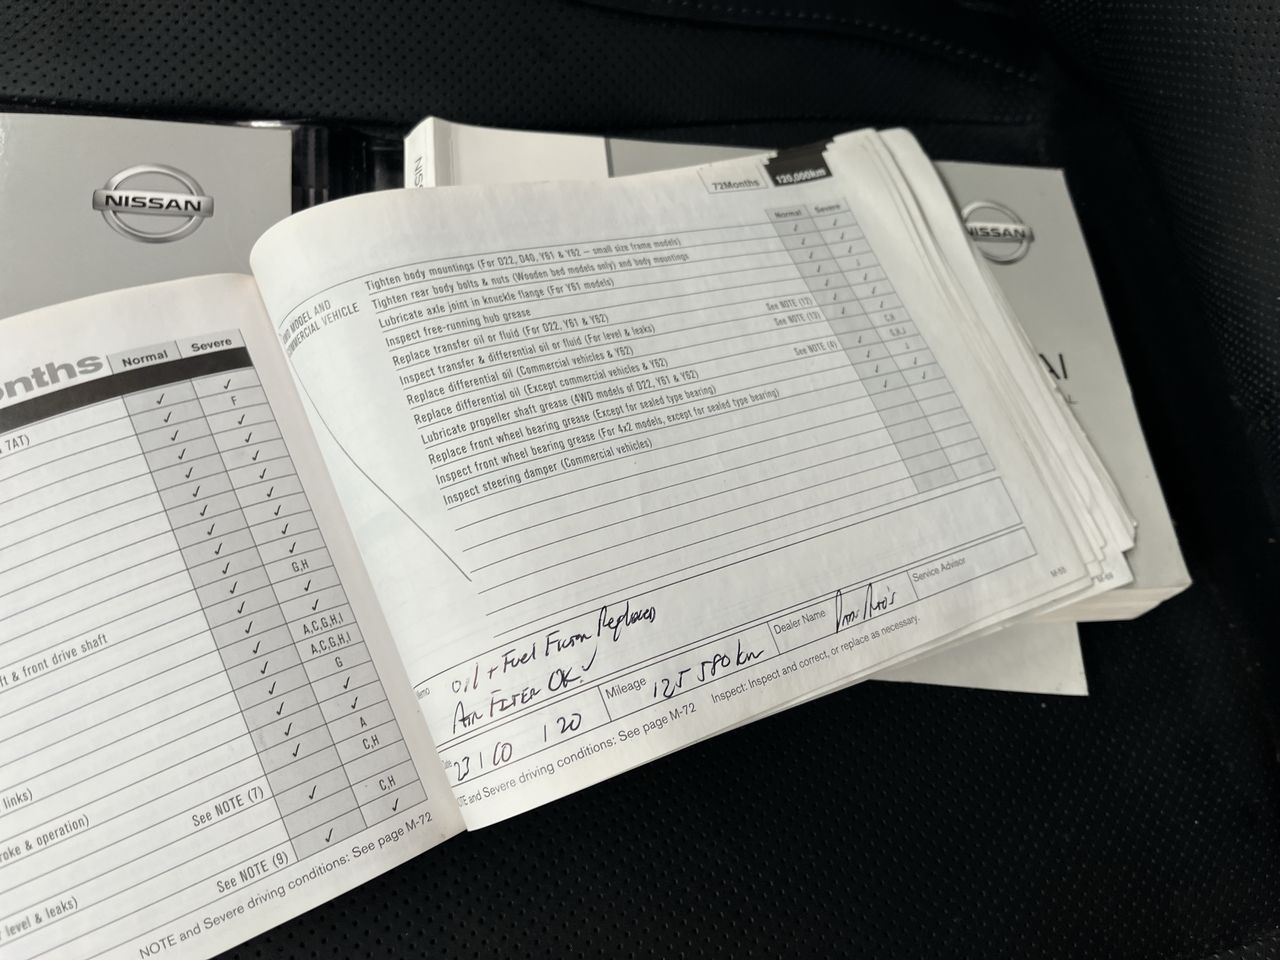 NISSAN
NISSAN
onths
Normal
Severe
7AT)
F
G,H
A,C,G,H,I
A,C,G,H,I
G
A
C,H
C,H
ft & front drive shaft
links)
roke & operation)
See NOTE (7)
See NOTE (9)
r level & leaks)
NOTE and Severe driving conditions: See page M-72
72Months
120,000km
Normal
Severe
MODEL AND
COMMERCIAL VEHICLE
Tighten body mountings (For D22, D40, Y61 & Y62 – small size frame models)
Tighten rear body bolts & nuts (Wooden bed models only) and body mountings
Lubricate axle joint in knuckle flange (For Y61 models)
Inspect free-running hub grease
Replace transfer oil or fluid (For D22, Y61 & Y62)
Inspect transfer & differential oil or fluid (For level & leaks)
Replace differential oil (Commercial vehicles & Y62) See NOTE (12)
Replace differential oil (Except commercial vehicles & Y62) See NOTE (13)
Lubricate propeller shaft grease (4WD models of D22, Y61 & Y62) See NOTE (4)
Replace front wheel bearing grease (Except for sealed type bearing)
Inspect front wheel bearing grease (For 4x2 models, except for sealed type bearing)
Inspect steering damper (Commercial vehicles)
C,H
Oil + Fuel Filter Replaced
Air Filter OK.
Mileage
125 580 km
Dealer Name
Service Advisor
NOTE and Severe driving conditions: See page M-72
Inspect: Inspect and correct, or replace as necessary.
NISSAN
AI